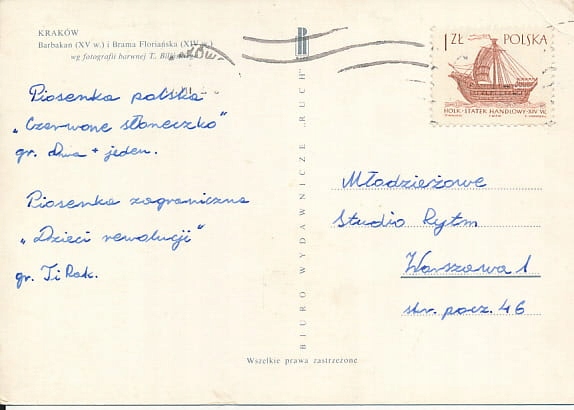 KRAKÓW
Barbakan (XV w.) i Brama Floriańska (XIV w.)
wg fotografii barwnej T.
Piosenka polska
„Czerwone słoneczko"
gr. dwa + jeden.
Piosenka zagraniczna
„Dzieci rewolucji"
gr. Ti Rak.
BIURO WYDAWNICZE „RUCH"
1 ZŁ POLSKA
HOLK-STATEK HANDLOWY-XIV W.
Młodzieżowe
Studio Rytm
Warszawa 1
skr. pocz. 46
Wszelkie prawa zastrzeżone